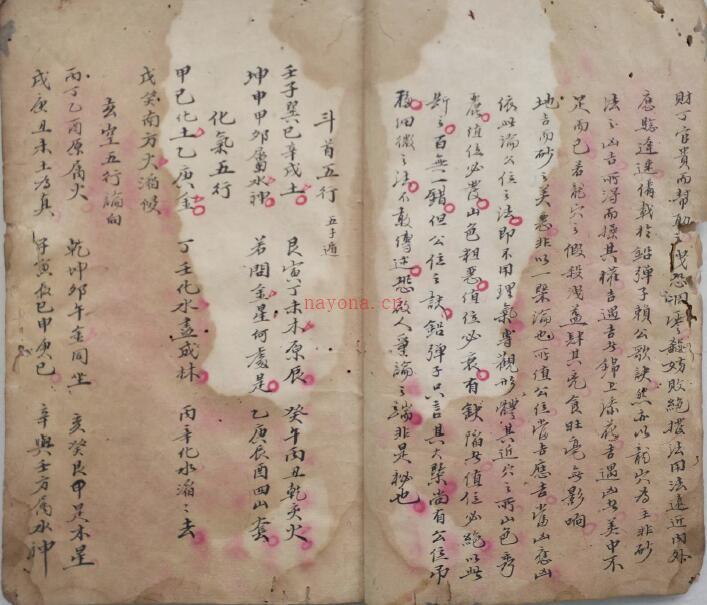 財丁官貴而幫助之 恐 殺 敗絕撥法用法遠近內外
應驗遠速備載於鉛彈子賴公歌訣然亦以龍穴為主非砂
法之凶吉所得而操其權吉遇吉如錦上添花吉遇凶如美中不
足而已若龍穴之假 肆其 食旺毫無影响
地吉而砂之美惡非以一槩論也所值公位當吉應吉當凶應凶
依此論公位之法即不用理氣專觀形體其近穴之所山色秀
麗值位必發山色粗惡值位必衰有缺陷者值位必絕以此
斷之百無一錯但公位之訣鉛彈子只言其大槩尚有公位吊
移細微之法不敢傳述恐啟人爭論之端非是秘也
nayona.cn
斗首五行 五子遁
壬子巽巳辛戌土 艮寅丁未木原辰 癸午丙丑乾亥火
坤申甲卯屬水神 若問金星何處是 乙庚辰酉四山
化氣五行
甲己化土乙庚金 丁壬化水盡成林 丙辛化水滔々去
戊癸南方火滔候
玄空五行論向
丙丁乙酉原屬火 乾坤卯午金同坐 亥癸艮甲是木星
戌庚丑未土為真 甲寅辰巳申庚巳 辛與壬方屬水神